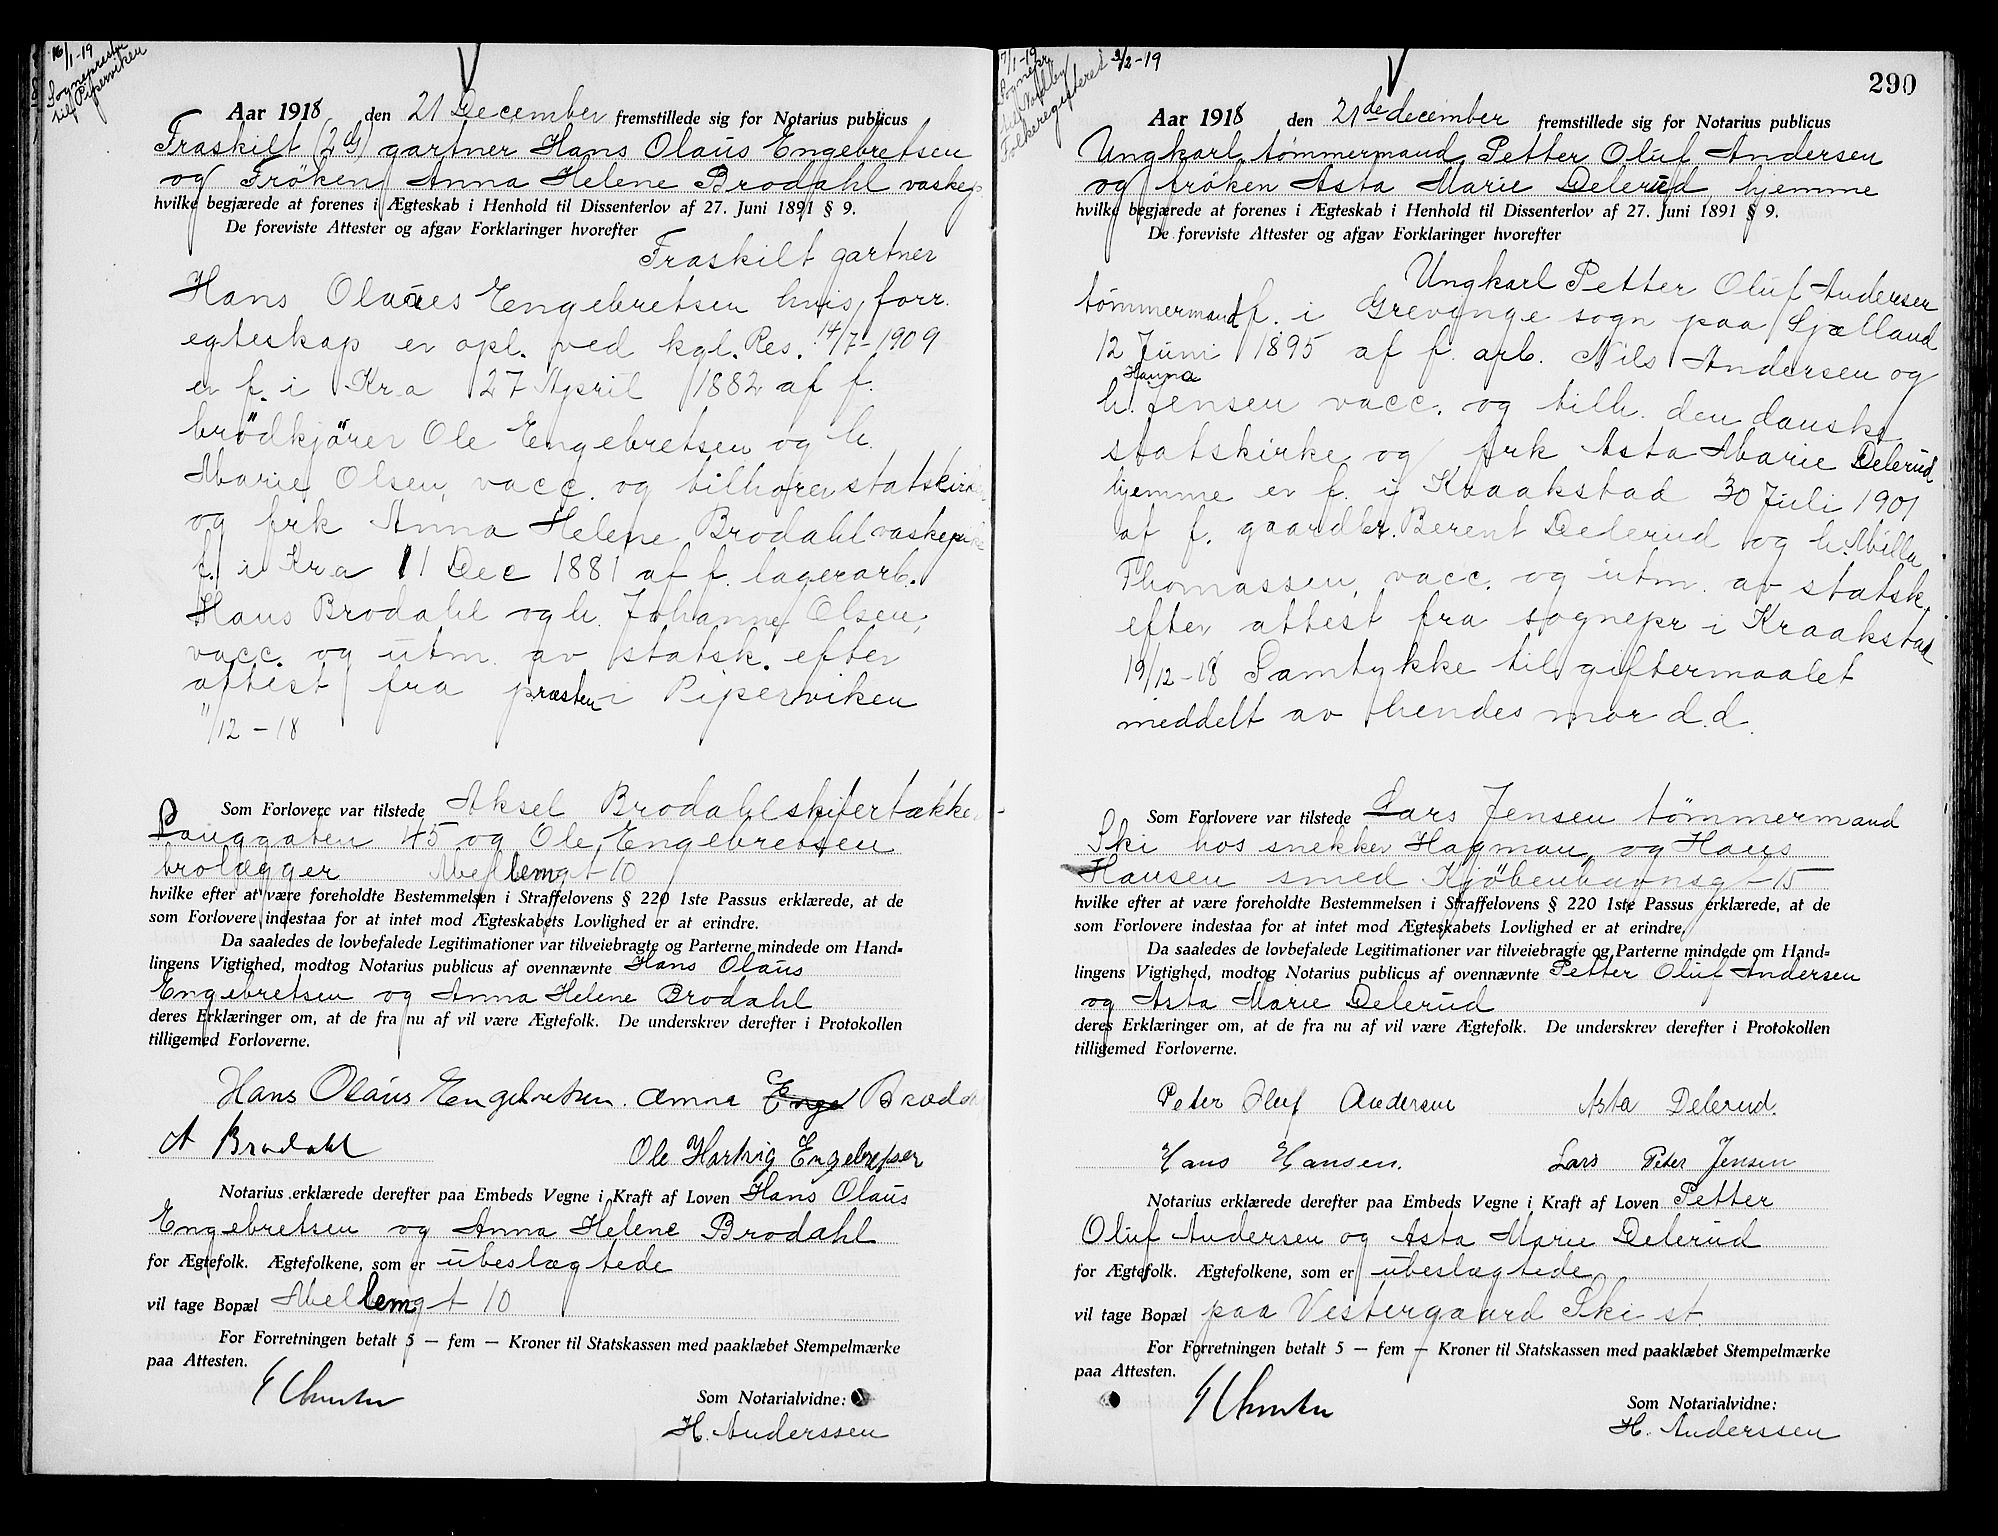 16/1-19
Sognepresten
til Piperviken
Aar 1918 den 21 December fremstillede sig for Notarius publicus
Fraskilt (2G) gartner Hans Olaus Engebretsen
og Frøken Anna Helene Brodahl vaskep.
hvilke begjærede at forenes i Ægteskab i Henhold til Dissenterlov af 27. Juni 1891 § 9.
De foreviste Attester og afgav Forklaringer hvorefter
Fraskilt gartner
Hans Olaues Engebretsen hvis forr.
egteskap er opl. ved kgl. Res. 14/7-1909
er f. i Kra 27 April 1882 af f.
brödkjörer Ole Engebretsen og h.
Marie Olsen, vacc. og tilhører statskirk
og frk Anna Helene Brodahl vaskepike
f. i Kra 11 Dec 1881 af f. lagerarb.
Hans Brodahl og h. Johanne Olsen,
vacc. og utm. av statsk. efter
attest fra præsten i Piperviken
"/12-18
Som Forlovere var tilstede Aksel Brodahl skifertække
Langgaten 45 og Ole Engebretsen
brolægger Møllemgt 10
hvilke efter at være foreholdte Bestemmelsen i Straffelovens § 220 1ste Passus erklærede, at de
som Forlovere indestaa for at intet mod Ægteskabets Lovlighed er at erindre.
Da saaledes de lovbefalede Legitimationer var tilveiebragte og Parterne mindede om Hand-
lingens Vigtighed, modtog Notarius publicus af ovennævnte Hans Olaus
Engebretsen og Anna Helene Brodahl
deres Erklæringer om, at de fra nu af vil være Ægtefolk. De underskrev derefter i Protokollen
tilligemed Forloverne.
Hans Olaus Engebretsen. Anna Enge Brodahl
A Brodahl Ole Hartvig Engebretsen
Notarius erklærede derefter paa Embeds Vegne i Kraft af Loven Hans Olaus
Engebretsen og Anna Helene Brodahl
for Ægtefolk. Ægtefolkene, som er ubeslægtede
vil tage Bopæl Møllemgt 10
For Forretningen betalt 5 — fem — Kroner til Statskassen med paaklæbet Stempelmærke
paa Attesten.
Som Notarialvidne:
H. Anderssen
7/1-19
Sognepr
til Nordby
Folkeregisteret 3/2-19
290
Aar 1918 den 21de december fremstillede sig for Notarius publicus
Ungkarl tømmermand Petter Oluf Andersen
og frøken Asta Marie Delerud hjemme
hvilke begjærede at forenes i Ægteskab i Henhold til Dissenterlov af 27. Juni 1891 § 9.
De foreviste Attester og afgav Forklaringer hvorefter
Ungkarl Petter Oluf Andersen
tømmermand f. i Grevinge sogn paa Sjælland
12 Juni 1895 af f. arb. Nils Andersen og
h. Hanna Jensen vacc. og tilh. den danske
statskirke og frk Asta Marie Delerud
hjemme er f. i Kraakstad 30 Juli 1901
af f. gaardbr. Berent Delerud og h. Milla
Thomassen, vacc. og utm. av statsk.
efter attest fra sognepr i Kraakstad
19/12-18 Samtykke til giftermaalet
meddelt av hendes mor d.d.
Som Forlovere var tilstede Lars Jensen tømmermand
Ski hos snekker Hagman og Hans
Hansen smed Kjøbenhavnsg 15
hvilke efter at være foreholdte Bestemmelsen i Straffelovens § 220 1ste Passus erklærede, at de
som Forlovere indestaa for at intet mod Ægteskabets Lovlighed er at erindre.
Da saaledes de lovbefalede Legitimationer var tilveiebragte og Parterne mindede om Hand-
lingens Vigtighed, modtog Notarius publicus af ovennævnte Petter Oluf Andersen
og Asta Marie Delerud
deres Erklæringer om, at de fra nu af vil være Ægtefolk. De underskrev derefter i Protokollen
tilligemed Forloverne.
Peter Oluf Andersen Asta Delerud.
Hans Hansen. Lars Peter Jensen
Notarius erklærede derefter paa Embeds Vegne i Kraft af Loven Petter
Oluf Andersen og Asta Marie Delerud
for Ægtefolk. Ægtefolkene, som er ubeslægtede
vil tage Bopæl paa Vestergaard Ski st
For Forretningen betalt 5 — fem — Kroner til Statskassen med paaklæbet Stempelmærke
paa Attesten.
Som Notarialvidne:
H. Anderssen